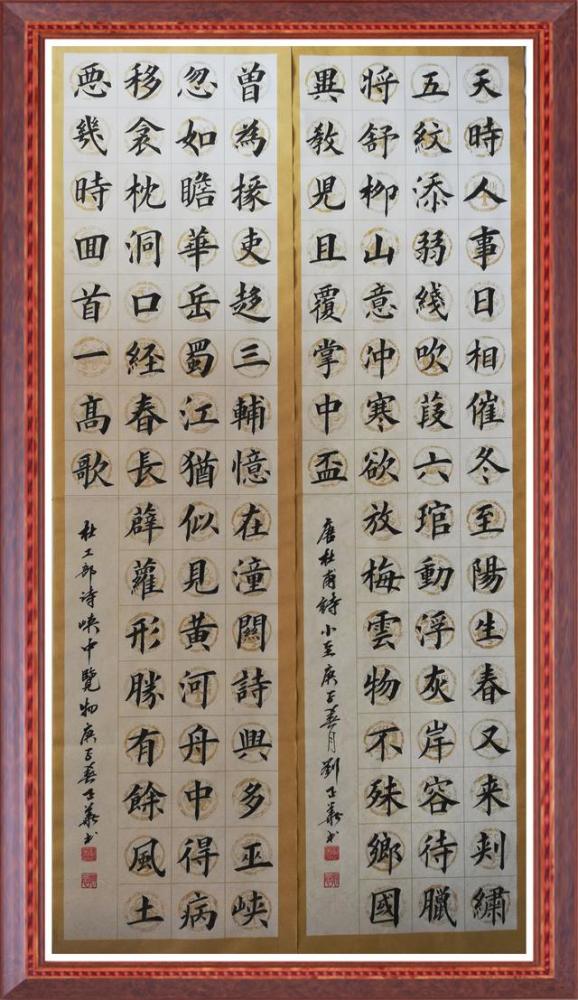 天時人事日相催冬至陽生春又来刾繡
五紋添弱綫吹葭六琯動浮灰岸容待臘
将舒柳山意冲寒欲放梅雲物不殊鄉國
異教児且覆掌中盃
唐杜甫詩小至庚子春月劉书
曾為掾吏趍三輔憶在潼關詩興多巫峡
忽如瞻華岳蜀江猶似見黄河舟中得病
移衾枕洞口経春長薜蘿形勝有餘風土
悪幾時囬首一髙歌
杜工部诗峡中覽物庚子春书